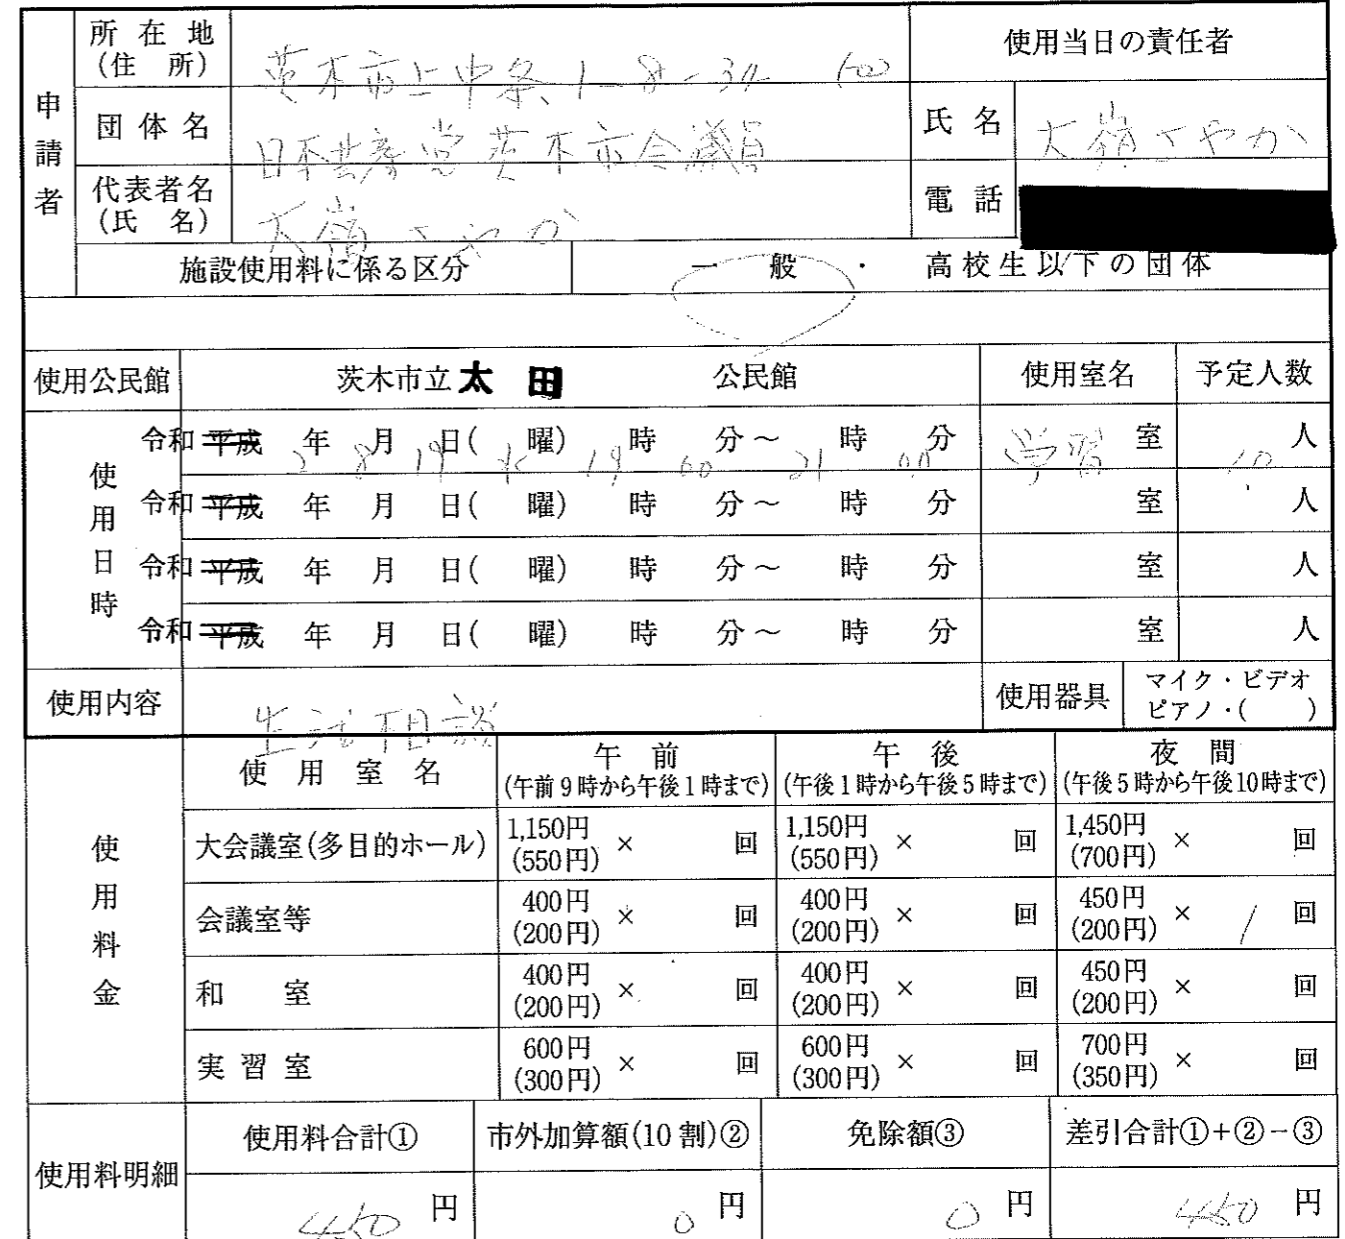 申請者
所在地(住所) 茨木市上中条1-8-34
使用当日の責任者
団体名 日本共産党茨木市会議員
氏名 大嶺さやか
代表者名(氏名) 大嶺さやか
電話
施設使用料に係る区分 一般・高校生以下の団体
使用公民館 茨木市立太田公民館 使用室名 予定人数
使用日時
令和 平成 2年 8月 19日(水曜) 19時 00分～ 21時 00分 学習室 10人
令和 平成 年 月 日( 曜) 時 分～ 時 分 室 人
令和 平成 年 月 日( 曜) 時 分～ 時 分 室 人
令和 平成 年 月 日( 曜) 時 分～ 時 分 室 人
使用内容 生活相談 使用器具 マイク・ビデオ
ピアノ・( )
使用料金
使用室名 午前 午後 夜間
(午前9時から午後1時まで) (午後1時から午後5時まで) (午後5時から午後10時まで)
大会議室(多目的ホール) 1,150円 × 回 1,150円 × 回 1,450円 × 回
(550円) (550円) (700円)
会議室等 400円 × 回 400円 × 回 450円 × 1 回
(200円) (200円) (200円)
和室 400円 × 回 400円 × 回 450円 × 回
(200円) (200円) (200円)
実習室 600円 × 回 600円 × 回 700円 × 回
(300円) (300円) (350円)
使用料明細
使用料合計① 市外加算額(10割)② 免除額③ 差引合計①+②-③
450円 0円 0円 450円